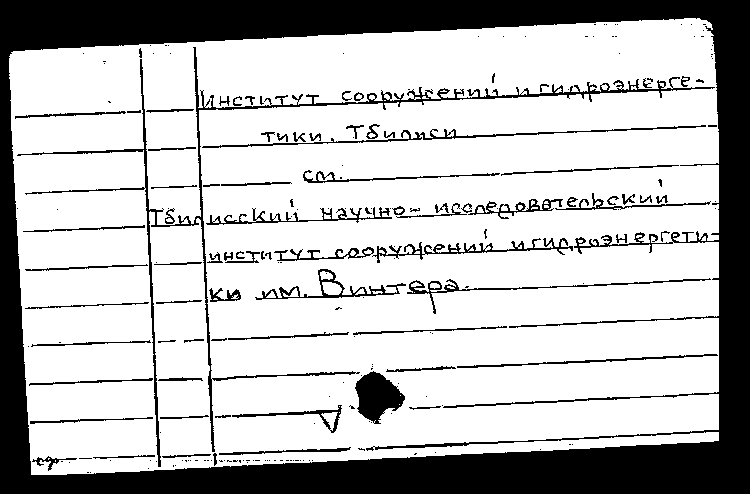 Институт сооружений и гидроэнерге-
тики. Тбилиси
см.
Тбилисский научно-исследовательский
институт сооружений и гидроэнергети-
ки им. Винтера.
V